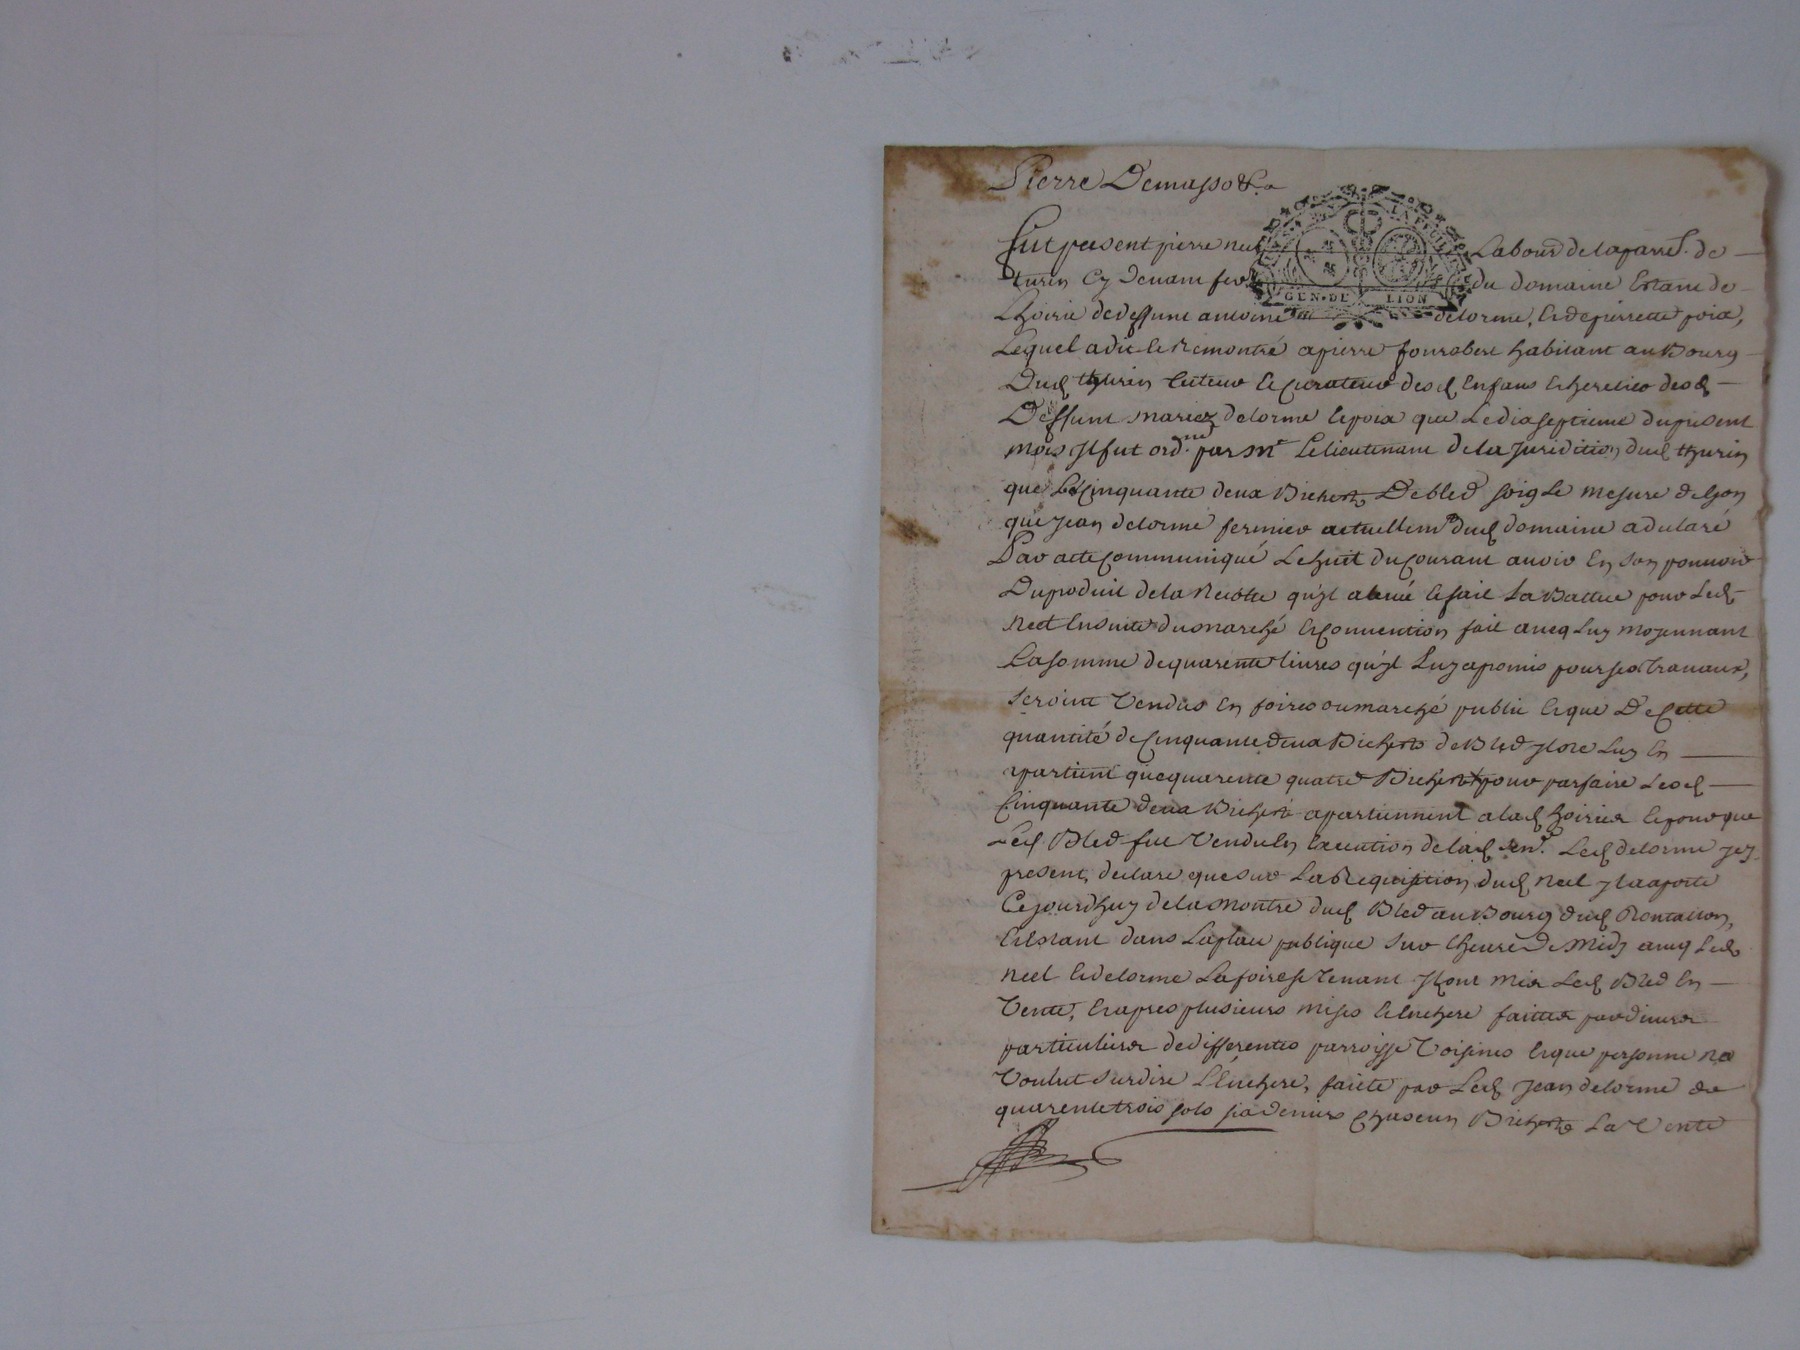 Pierre Demasso &.a
Fut present pierre neel Labour de la parr.e de
turin Cy devant fer du domaine Estant de
GEN. DE LION
Lhoirie de deffunt antoine delorme, & de pierrette poix,
Lequel a dit & Remontré a pierre fourobert habitant au Bourg
Dud thurin tuteur & Curateur desd Enfans & heretier desd
Deffunt mariez delorme & poix que Le dixseptieme du present
mois Il fut ord.né par Mr Le lieutenant de la Juridition dud thurin
que Les Cinquante deux Bichets De bled soigle mesure de Lyon
que Jean delorme fermier actuellemt dud domaine a declaré
Par acte Communiqué Le huit du Courant avoir En son pouvoir
Du produit de la Recolte qu'il a levé & fait La Battue pour Led
neel Ensuitte du marché & Convention fait aveq Luy moyennant
La somme de quarente livres qu'il Luy a promis pour ses travaux,
seroint Vendus En foires ou marché public & que De Cette
quantité de Cinquante deux Bichets de Bled Il ne Luy En
apartient que quarente quatre Bichets pour parfaire Lesd
Cinquante deux Bichets apartiennent a lad hoirie & pour que
Led Bled fut Vendu En Execution de lad sen.ce Led delorme Icy
present, declare que sur La Requisition dud neel Il a aporté
Cejourdhuy de la Montre dud Bled au Bourg dud Rontalon,
& Estant dans La place publique sur lheure de Midy aveq Led
neel & delorme La foire se tenant Ils ont mis Led Bled En
Vente, & apres plusieurs mises & Enchere faittes par divers
particuliers de differentes parroisse Voisines & que personne na
Voulut surdire L'Enchere, faicte par Led Jean delorme de
quarente trois sols six deniers Chascun Bichets La Vente